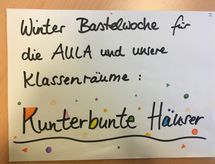 Winter Bastelwoche für
die AULA und unsere
Klassenräume :
Kunterbunte Häuser